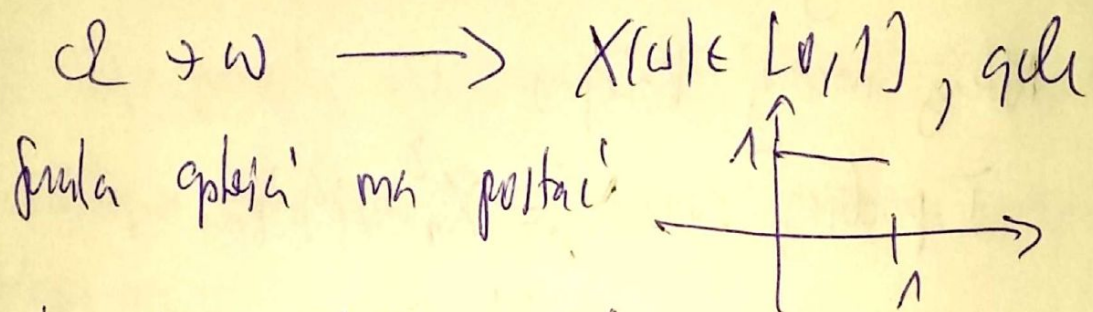 Ω ∋ ω ⟶ X(ω) ∈ [0,1], gdzie
funkcja gęstości ma postać:
1
1